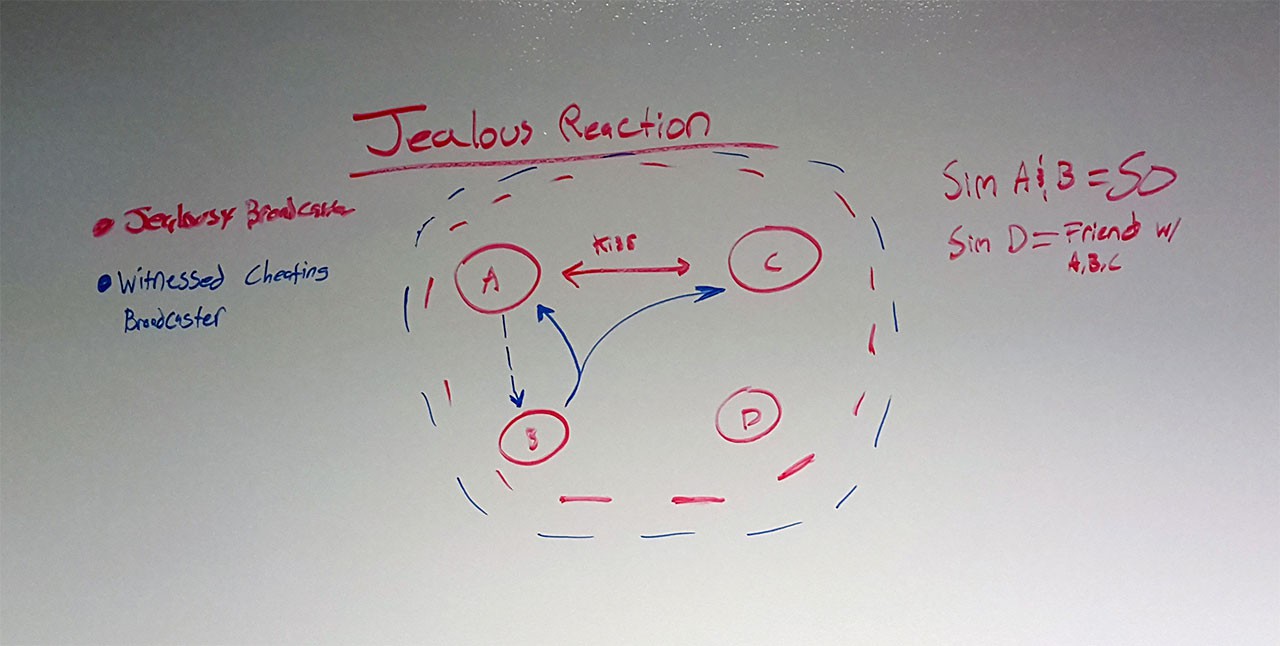 Jealous Reaction
Jealousy Broadcaster
Witnessed Cheating
Broadcaster
Sim A & B = SO
Sim D = Friend w/
A, B, C
A
Kiss
C
B
D